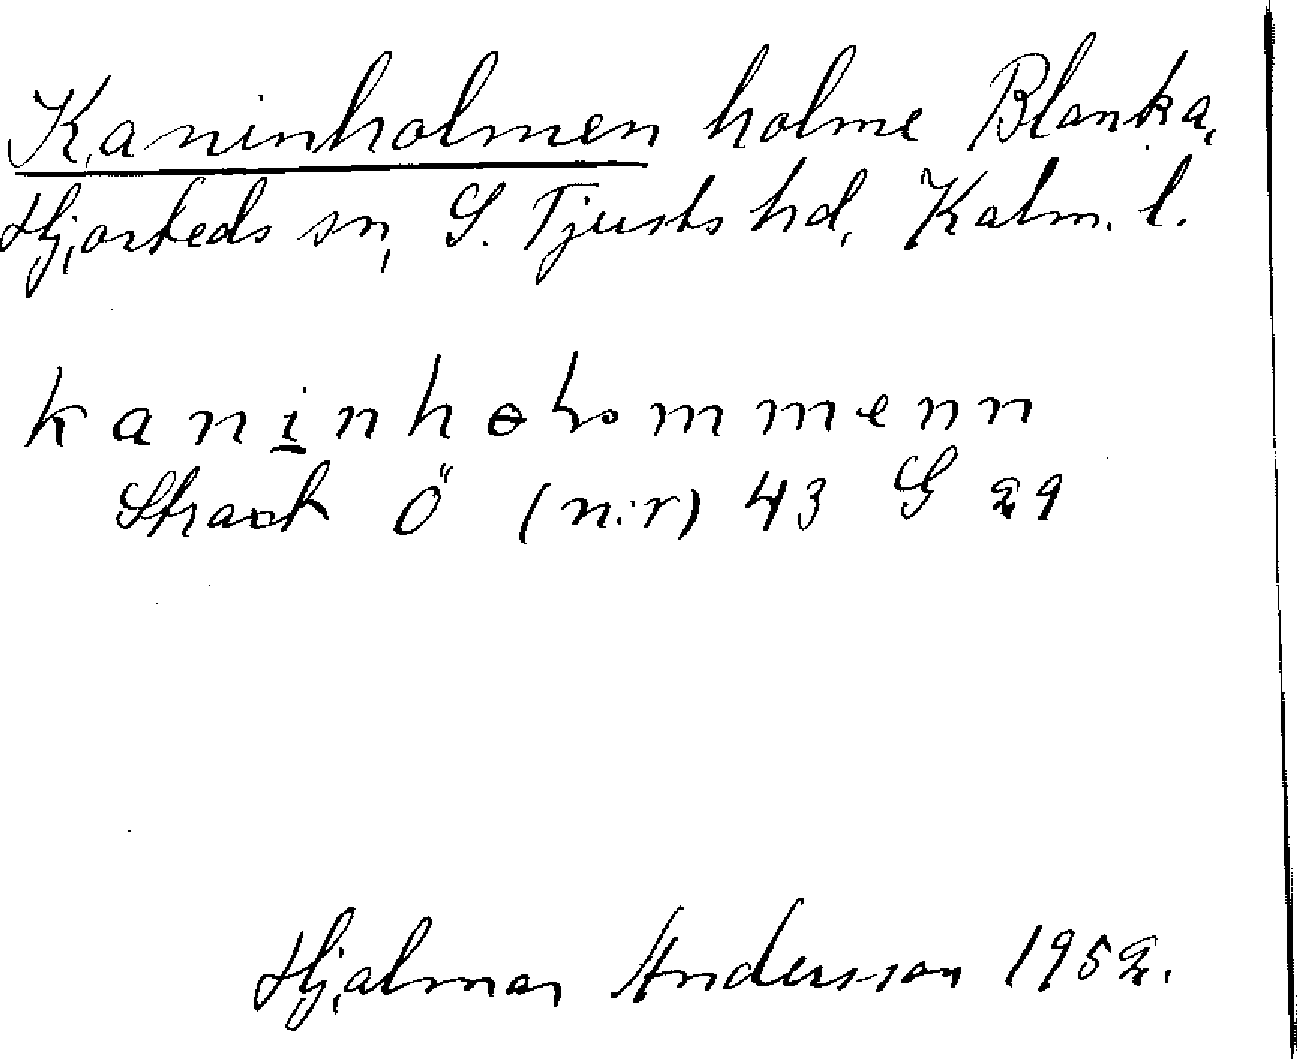 Kaninholmen holme Blanka,
Hjorteds sn, S. Tjusts hd, Kalm. l.
kaninhommenn
Ö (n:r) 43 G 29
Hjalmar Andersson 1952.